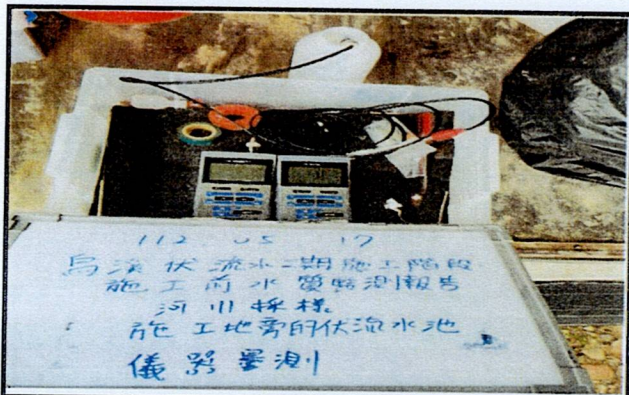 112 05 17
烏溪伏流水二期施工階段
施工前水質監測報告
河川採樣
施工地旁的伏流水池
儀器量測